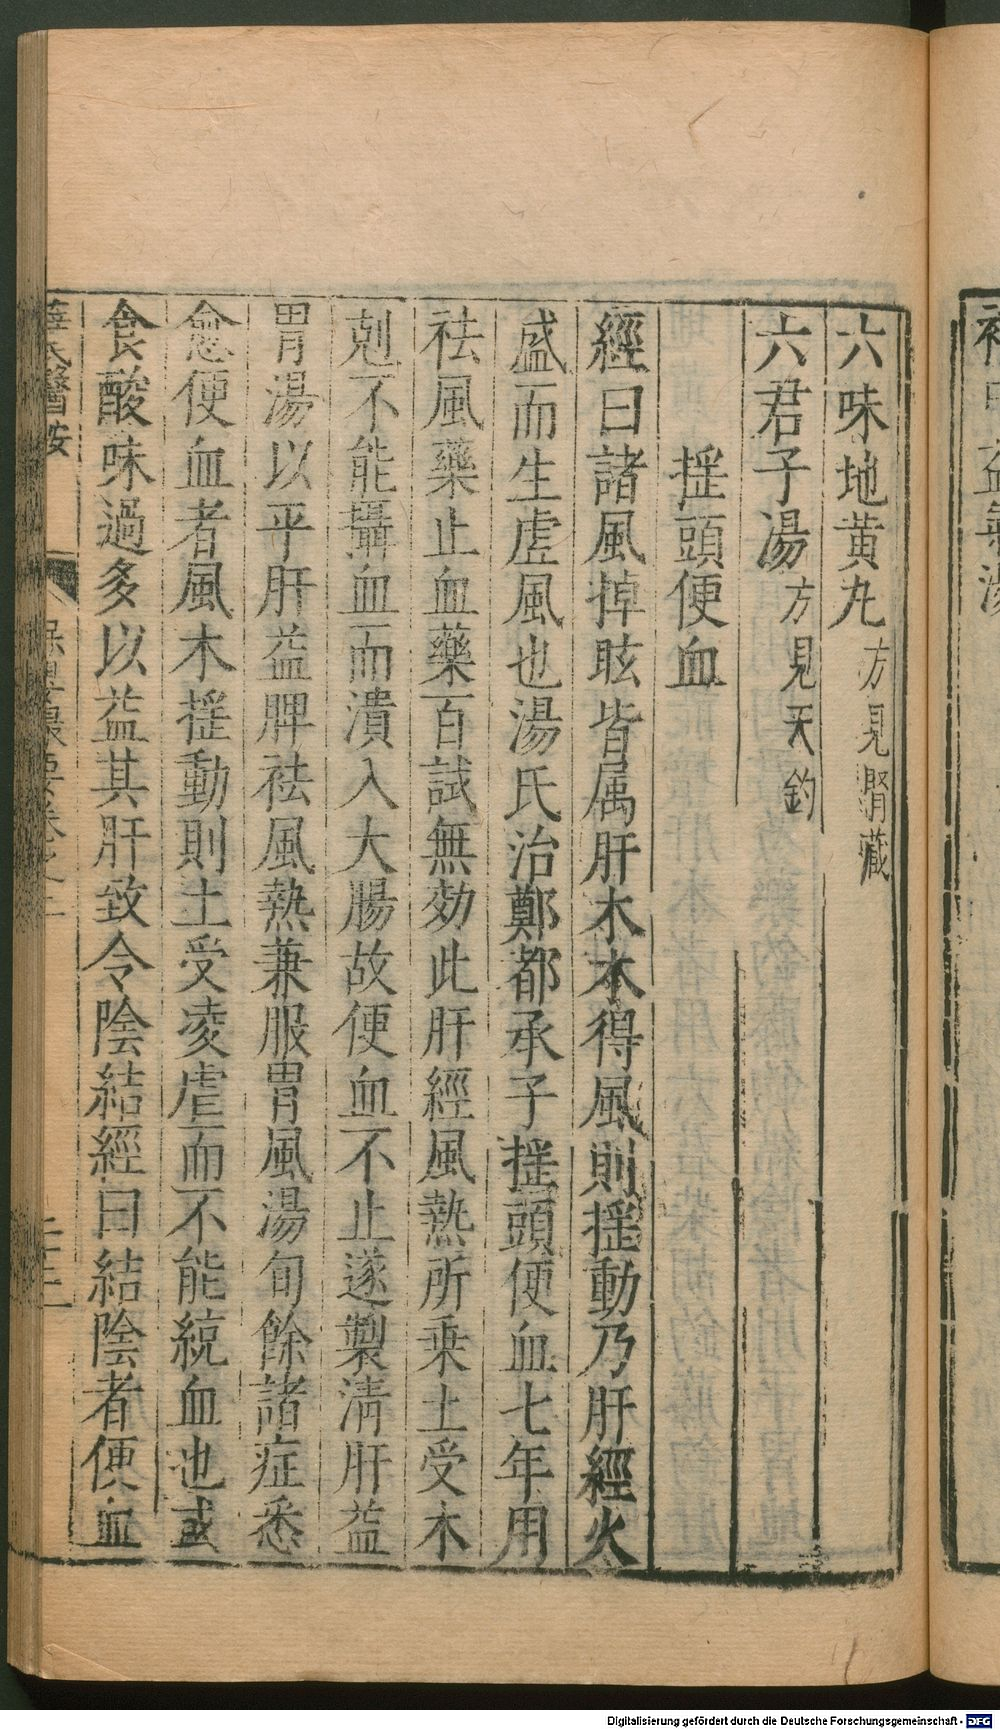 六味地黄丸方見腎藏
六君子湯方見天釣
揺頭便血
經曰諸風掉眩皆属肝木木得風則揺動乃肝經火
盛而生虗風也湯氏治鄭都承子揺頭便血七年用
祛風藥止血藥百試無効此肝經風熱所乗土受木
剋不能攝血而潰入大腸故便血不止遂製淸肝益
胃湯以平肝益脾祛風熱兼服胃風湯旬餘諸症悉
愈便血者風木揺動則土受凌虐而不能統血也或
食酸味過多以益其肝致令陰結經曰結陰者便血
薛氏醫按
保嬰撮要卷之二
Digitalisierung gefördert durch die Deutsche Forschungsgemeinschaft - DFG